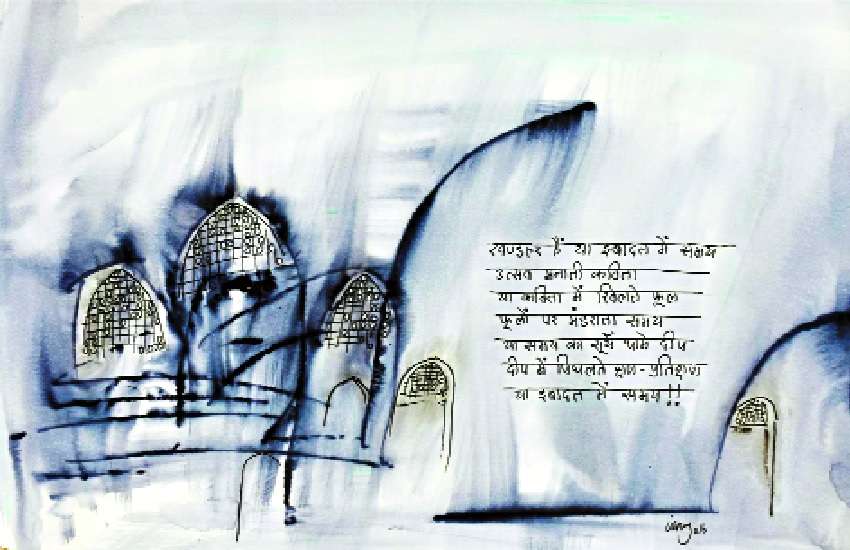 खण्डहर हैं या इबादत में समय
उत्सव मनाती कविता
या कविता में खिलते फूल
फूलों पर मंडराता समय
या समय का सूर्य थामे दीप
दीप में पिघलते क्षण-प्रतिक्षण
या इबादत में समय!!